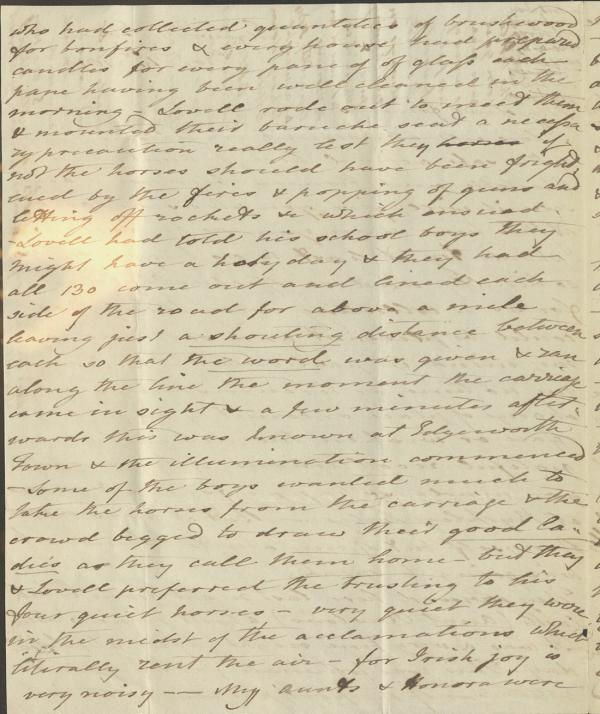 who had collected quantities of brushwood
for bonfires & every house had prepared
candles for every pane of of glass each
pane having been well cleaned in the
morning - Lovell rode out to meet them
& mounted their barouche seat a necessa
ry precaution really lest they horses if
not the horses should have been fright
ened by the fires & popping of guns and
letting off rockets &c which ensued.
- Lovell had told his school boys they
might have a holyday & they had
all 130 come out and lined each
side of the road for above a mile
leaving just a shouting distance between
each so that the word was given & ran
along the line the moment the carriage
came in sight & a few minutes after-
wards this was known at Edgeworth
Town & the illumination commenced
- Some of the boys wanted much to
take the horses from the carriage & the
crowd begged to draw their good la-
dies as they call them home - but they
& Lovell preferred the trusting to his
four quiet horses - very quiet they were
in the midst of the acclamations which
literally rent the air - for Irish joy is
very noisy -- My aunts & Honora were